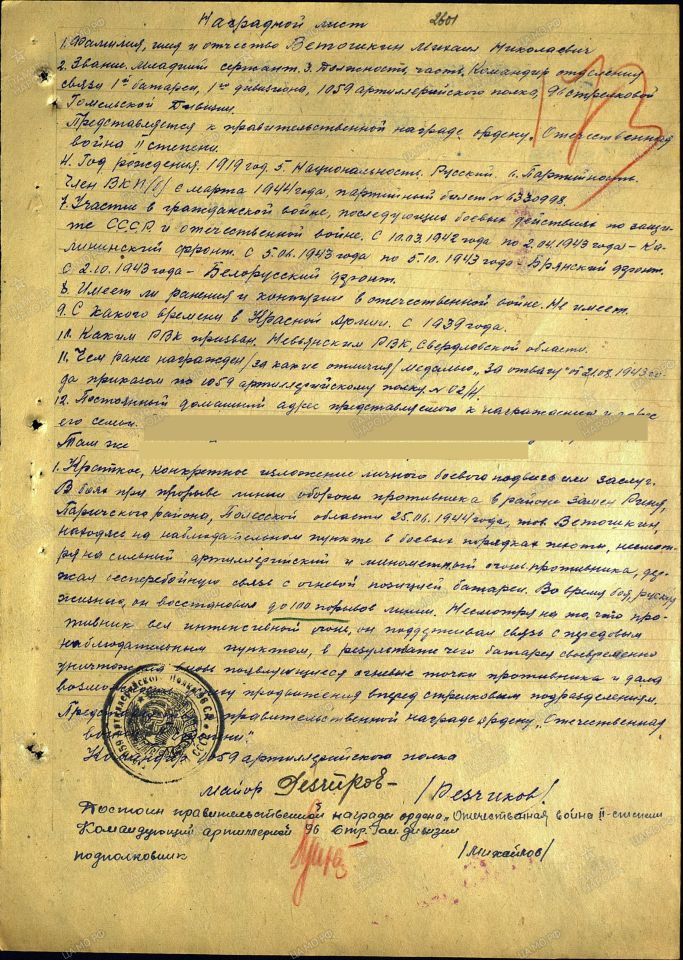 Наградной лист 2601
1. Фамилия, имя и отчество Ветошкин Михаил Николаевич
2. Звание. Младший сержант. 3. Должность, часть. Командир отделения
связи 1й батареи, 1го дивизиона, 1059 артиллерийского полка, 96 стрелковой
Гомельской Дивизии.
Представляется к правительственной награде ордену „Отечественная
война II степени.
4. Год рождения. 1919 год. 5. Национальность. Русский. 6. Партийность.
Член ВКП/б/ с марта 1944 года, партийный билет № 6330998.
7. Участие в гражданской войне, последующих боевых действиях по защи-
те СССР и отечественной войне. С 10.03.1942 года по 2.04.1943 года – Ка-
лининский фронт. С 5.06.1943 года по 5.10.1943 года – Брянский фронт.
С 2.10.1943 года – Белорусский фронт.
8. Имеет ли ранения и контузии в отечественной войне. Не имеет.
9. С какого времени в Красной Армии. С 1939 года.
10. Каким РВК призван. Невьянским РВК, Свердловской области.
11. Чем ранее награжден /за какие отличия/ медалью „За отвагу" от 21.08.1943 го-
да приказом по 1059 артиллерийскому полку № 02/н.
12. Постоянный домашний адрес представляемого к награждению и адрес
его семьи.
Там же
1. Краткое, конкретное изложение личного боевого подвига или заслуг.
В боях при прорыве линии обороны противника в районе
Паричского района, Полесской области 25.06.1944 года, тов. Ветошкин,
находясь на наблюдательном пункте в боевых порядках пехоты, несмот-
ря на сильный артиллерийский и минометный огонь противника, дер-
жал бесперебойную связь с огневой позицией батареи. Во время боя, рискуя
жизнью, он восстановил до 100 порывов линии. Несмотря на то, что про-
тивник вел интенсивный огонь, он поддерживал связь с передовым
наблюдательным пунктом, в результате чего батарея своевременно
уничтожала вновь появляющиеся огневые точки противника и дала
продвижения вперед стрелковым подразделениям.
правительственной награде ордену „Отечественная
1059 артиллерийского полка
майор /Резчиков/
Достоин правительственной награды ордена „Отечественная война II-степени
Командующий артиллерией 96 Стр. Гом. дивизии
подполковник /Михайлов/